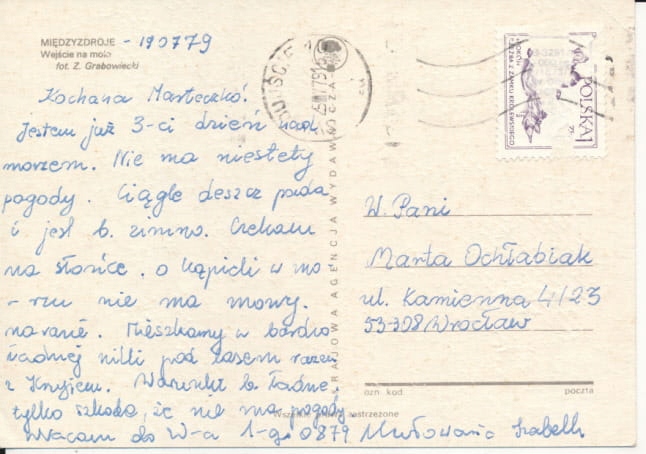 MIĘDZYZDROJE - 190779
Wejście na molo
fot. Z. Grabowiecki
Kochana Marteczko.
Jestem już 3-ci dzień nad
morzem. Nie ma niestety
pogody. Ciągle deszcz pada
i jest b. zimno. Czekam
na słońce. o kąpieli w mo
-rzu nie ma mowy.
narazie. Mieszkamy w bardzo
ładnej willi pod lasem razem
z Krzyjem. Warunki b. ładne.
tylko szkoda, że nie ma pogody
Wracam do W-a 1-go 0879
KRAJOWA AGENCJA WYDAWNICZA
POLSKA
W. Pani
Marta Ochłabiak
ul. Kamienna 4/23
53-308 Wrocław
ozn kod
poczta
Wszelkie prawa zastrzeżone
Izabella